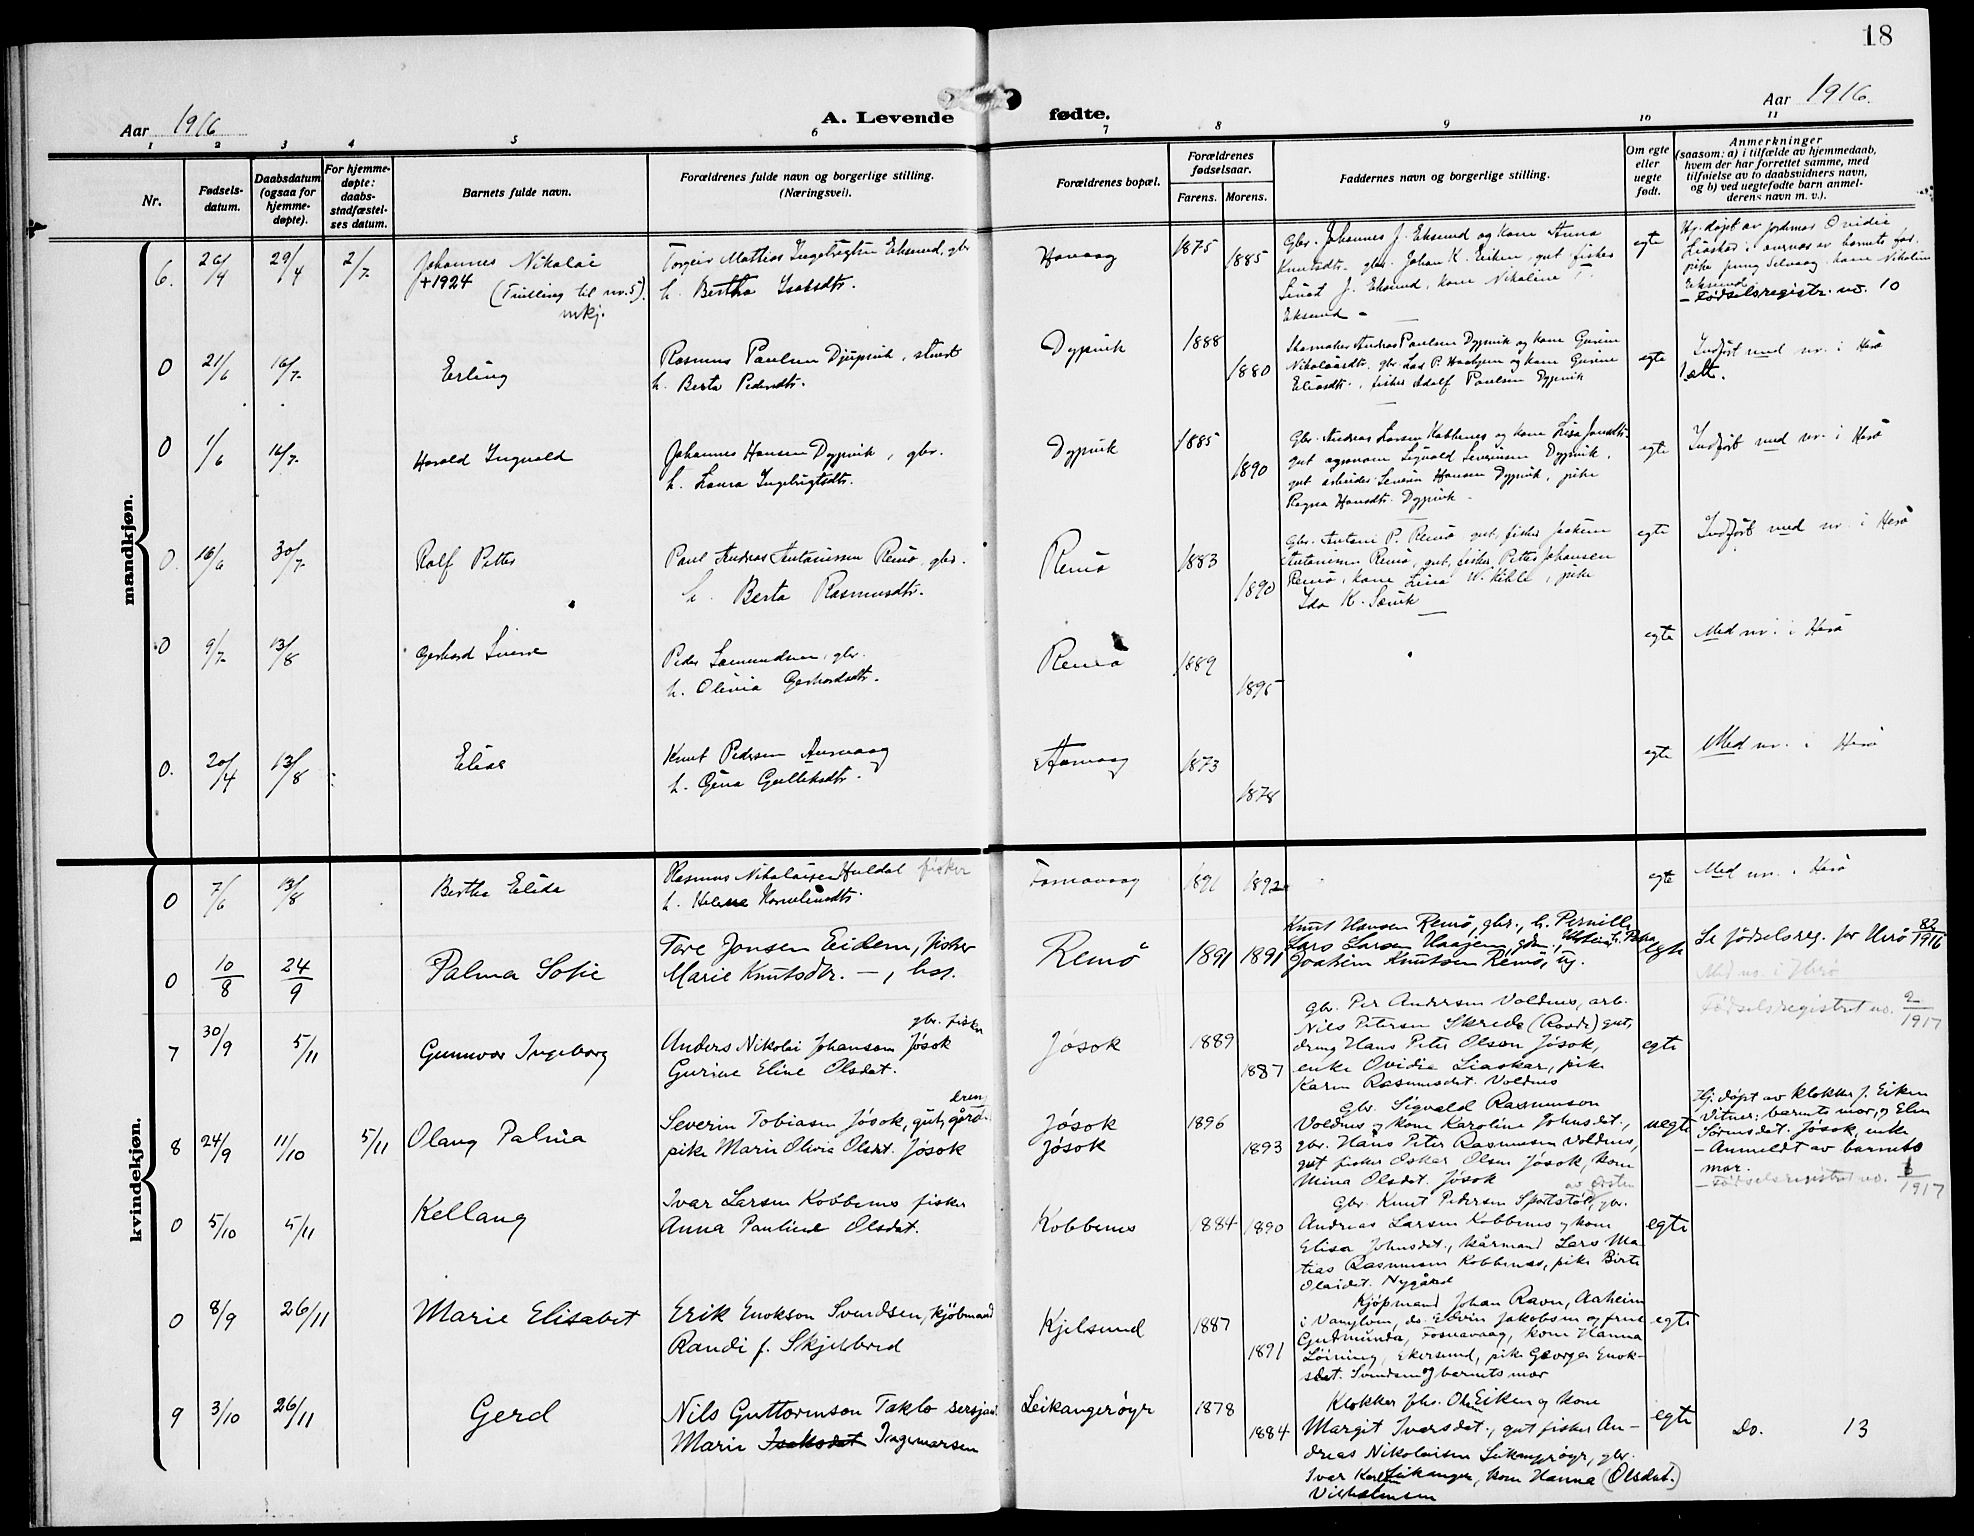 18
Aar 1916
A. Levende fødte.
Aar 1916.
1 2 3 4 5 6 7 8 9 10 11
Nr.
Fødsels-
datum.
Daabsdatum
(ogsaa for
hjemme-
døpte).
For hjemme-
døpte:
daabs-
stadfæstel-
ses datum.
Barnets fulde navn.
Forældrenes fulde navn og borgerlige stilling.
(Næringsvei).
Forældrenes bopæl.
Forældrenes
fødselsaar.
Farens. Morens.
Faddernes navn og borgerlige stilling.
Om egte
eller
uegte
født.
Anmerkninger
(saasom: a) i tilfælde av hjemmedaab,
hvem der har forrettet samme, med
tilføielse av to daabsvidners navn,
og b) ved uegtefødte barn anmel-
derens navn m. v.).
mandkjøn.
6. 26/4 29/4 2/7.
Johannes Nikolai
+1924
(Tvilling til nr. 5).
mkj.
Torgeir Mathias Ingebrigtsen Eksund, gbr
h. Bertha Isaksdtr.
1875 1885
Gbr. Johannes J. Eksund og kone Anna
Knutsdtr. gbr. Johan K. Eiken, gut fisker
J. Eksund, kone Nikoline
Eksund -
egte
Hj. døpt av jordmor Ovidie
pike Selvaag kone Nikoline
Eksund
- Fødselsregistr. nr. 10
0 21/6 16/7.
Erling
Rasmus Paulsen Djupvik,
h. Berta Pedersdtr.
Dypvik
1888 1880
Skomaker Andreas Paulsen Dypvik og kone Gurine
Nikolaisdtr. gbr. P. og kone Gurine
Eliasdtr., fisker Adolf Paulsen Dypvik
egte
Indført med nr. i Herø
0 1/6 16/7.
Harald Ingvald
Johannes Hansen Dypvik, gbr.
h. Laura Ingebrigtsdtr.
Dypvik
1885 1890
Gbr. Andreas Larsen Kobbenes og kone Lisa Jonsdtr.
gut agronom Sigvald Severinsen Dypvik,
gut arbeider Severin Hansen Dypvik, pike
Ragna Hansdtr. Dypvik -
egte
Indført med nr. i Herø
0. 16/6 30/7.
Rolf Petter
Paul Andreas Antonissen Remø, gbr.
h. Berta Rasmusdtr.
Remø
1883 1890
Gbr. Antoni P. Remø gut, fisker Joakim
Antonissen Remø, gut, fisker Petter Johansen
Remø, kone Lina W. Kihle, pike
Ida K. Sævik
egte
Indført med nr. i Herø
0 9/7. 13/8
Gerhard
Peder Samundsen, gbr.
h. Olivia Gerhardsdtr.
Remø
1889 1895
egte
Med nr. i Herø
0. 20/4 13/8
Elias
Knut Pedersen Aurvaag
h. Gina Gulleksdtr.
1873 1878
egte
Med nr. i Herø
kvindekjøn.
0 7/6 13/8
Bertha Elida
Rasmus Nikolaisen Huldal fisker
h. Helene
Fosnavaag
1891 1892
egte
Med nr. i Herø
0 10/8 24/9
Palma Sofie
Tore Jonsen Eidem, fisker
Marie Knutsdtr. —, hst.
Remø
1891 1891
Knut Hansen Remø, gbr., h. Pernille
Lars Larsen Haajem, gdm., h. Petra
Joakim Knutsen Remø, ug.
egte
Se fødselsreg. for Herø 82/1916
Med nr. i Herø
7 30/9 5/11
Gunnvor Ingeborg
gbr. fisker
Anders Nikolai Johansen Jøsok
Gurine Eline Olsdat.
Jøsok
1889 1887
Gbr. Per Andersen Voldnes, arb.
Nils Petersen Skrede (Rovde) gut,
dreng Hans Peter Olson Jøsok,
enke Ovidie Liaskar, pike
Karen Rasmusdat. Voldnes
egte
Fødselsregistret no. 2/1917
8 24/9 11/10 5/11
Olaug Palma
dreng
Severin Tobiasen Jøsok, gut, gård-
pike Marie Olivia Olsdt. Jøsok
Jøsok
Jøsok
1896 1893
Gbr. Sigvald Rasmussen
Voldnes og kone Karoline Johnsdat.,
gbr. Hans Peter Rasmussen Voldnes,
gut fisker Oskar Olsen Jøsok, kone
Mina Olsdat. Jøsok
uegte
Hj. døpt av klokker J. Eiken
Vitner: barnets mor, og Elen
Sørensdat. Jøsok, enke
- Anmeldt av barnets
mor.
- Fødselsregistret no. /1917
0 5/10 5/11
Kellaug
Ivar Larsen Kobbenes fisker
Anna Pauline Olsdat.
Kobbenes
1884 1890
Gbr. Knut Pedersen Sportstøl, gbr.
Andreas Larsen Kobbenes og kone
Elisa Johnsdat., kårmand Lars Ma-
tias Rasmussen Kobbenes, pike Birte
Olaidat. Nygård
egte
0 8/9 26/11
Marie Elisabet
Erik Enokson Svendsen, kjöbmand
Randi f. Skjelbred
Kjelsund
1887 1891
Kjöpmand Johan Ravn, Aaheim
i Vanylven, do. Edvin Jakobsen og frue
Gudmunda, Fosnavaag, kone Hanna
Löining, Ekersund, pike Georga Enok-
sdat. Svendsen og barnets mor
egte
9 3/10 26/11
Gerd
Nils Guttormson Taklo sersjant
Marie Isaksdat Ingemarsen
Leikangerøyr
1878 1884
Klokker Johs. Olsen Eiken og kone
Margit Iversdat., gut fisker An-
dreas Nikolaisen Leikangrøyr, gbr.
Ivar Karlsen Leikanger, kone Hanna (Olsdat.)
Vilhelmsen
egte
Do. 13